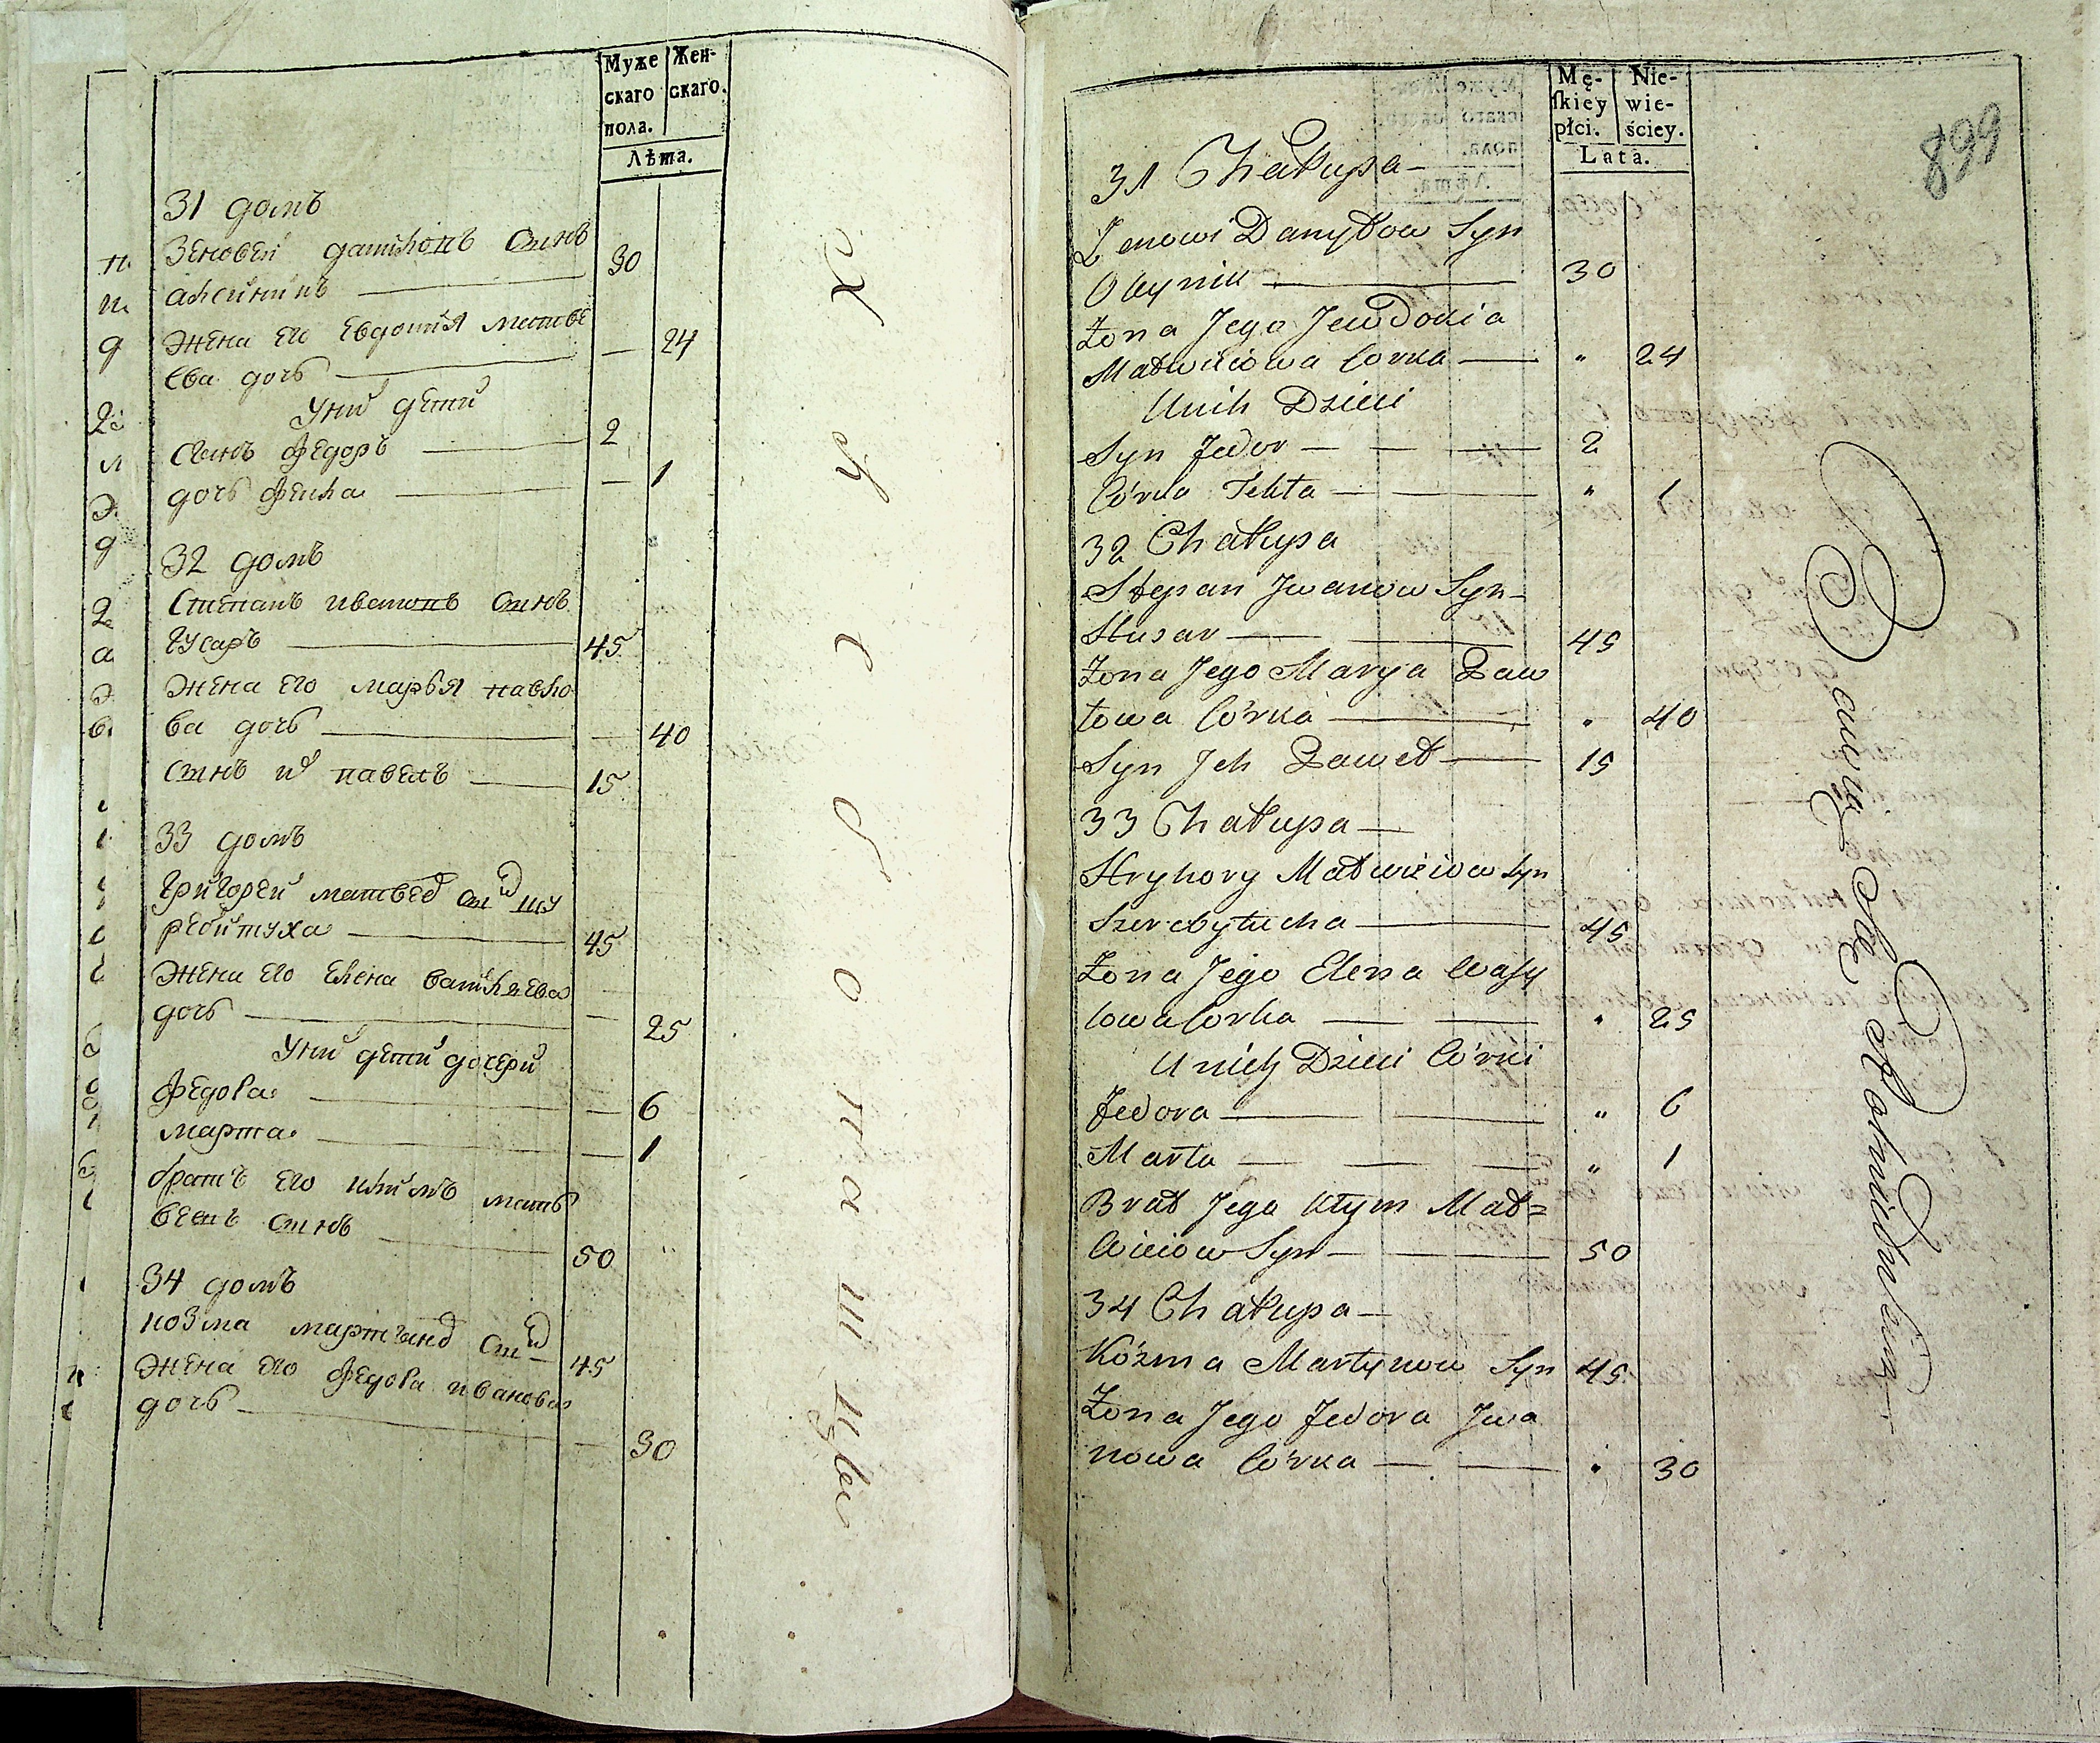 Муже
скаго
пола.
Жен-
скаго.
Лѣта.
31 домъ
Зеновей данилонъ сынъ
алейникъ 30
жена его Евдокия матвѣ
ева дочь 24
у нихъ дети
сынъ федоръ 2
дочь фекла 1
32 домъ
Степанъ ивановъ сынъ
гусаръ 45
жена его марья павло
ва дочь 40
сынъ их павелъ 15
33 домъ
григорей матвеев сын ше
ребитуха 45
жена его Елена василиева
дочь 25
у них дети дочери
федора 6
марта 1
братъ его климъ матв
веевъ сынъ 50
34 домъ
козма мартинов сын 45
жена его федора иванова
дочь 30
Mę-
ſkiey
płci.
Nie-
wie-
ściey.
Lata.
899
31 Chałupa
Zenowi Danyłow Syn
Oleynik 30
Żona Jego Jewdokia
Matwieiowa Corka " 24
U nich Dzieci
Syn Fedor 2
Córka Tekla " 1
32 Chałupa
Stepan Jwanow Syn
Husar 45
Żona Jego Marya Paw
łowa Córka " 40
Syn Jch Paweł 15
33 Chałupa
Hryhory Matwieiow Syn
Szerebytucha 45
Żona Jego Elena Wasy
lowa Corka " 25
U nich Dzieci Córki
Fedora " 6
Marta " 1
Brat Jego Kłym Mat=
wieiow Syn 50
34 Chałupa
Kózma Martynow Syn 45
Żona Jego Fedora Jwa
nowa Córka " 30